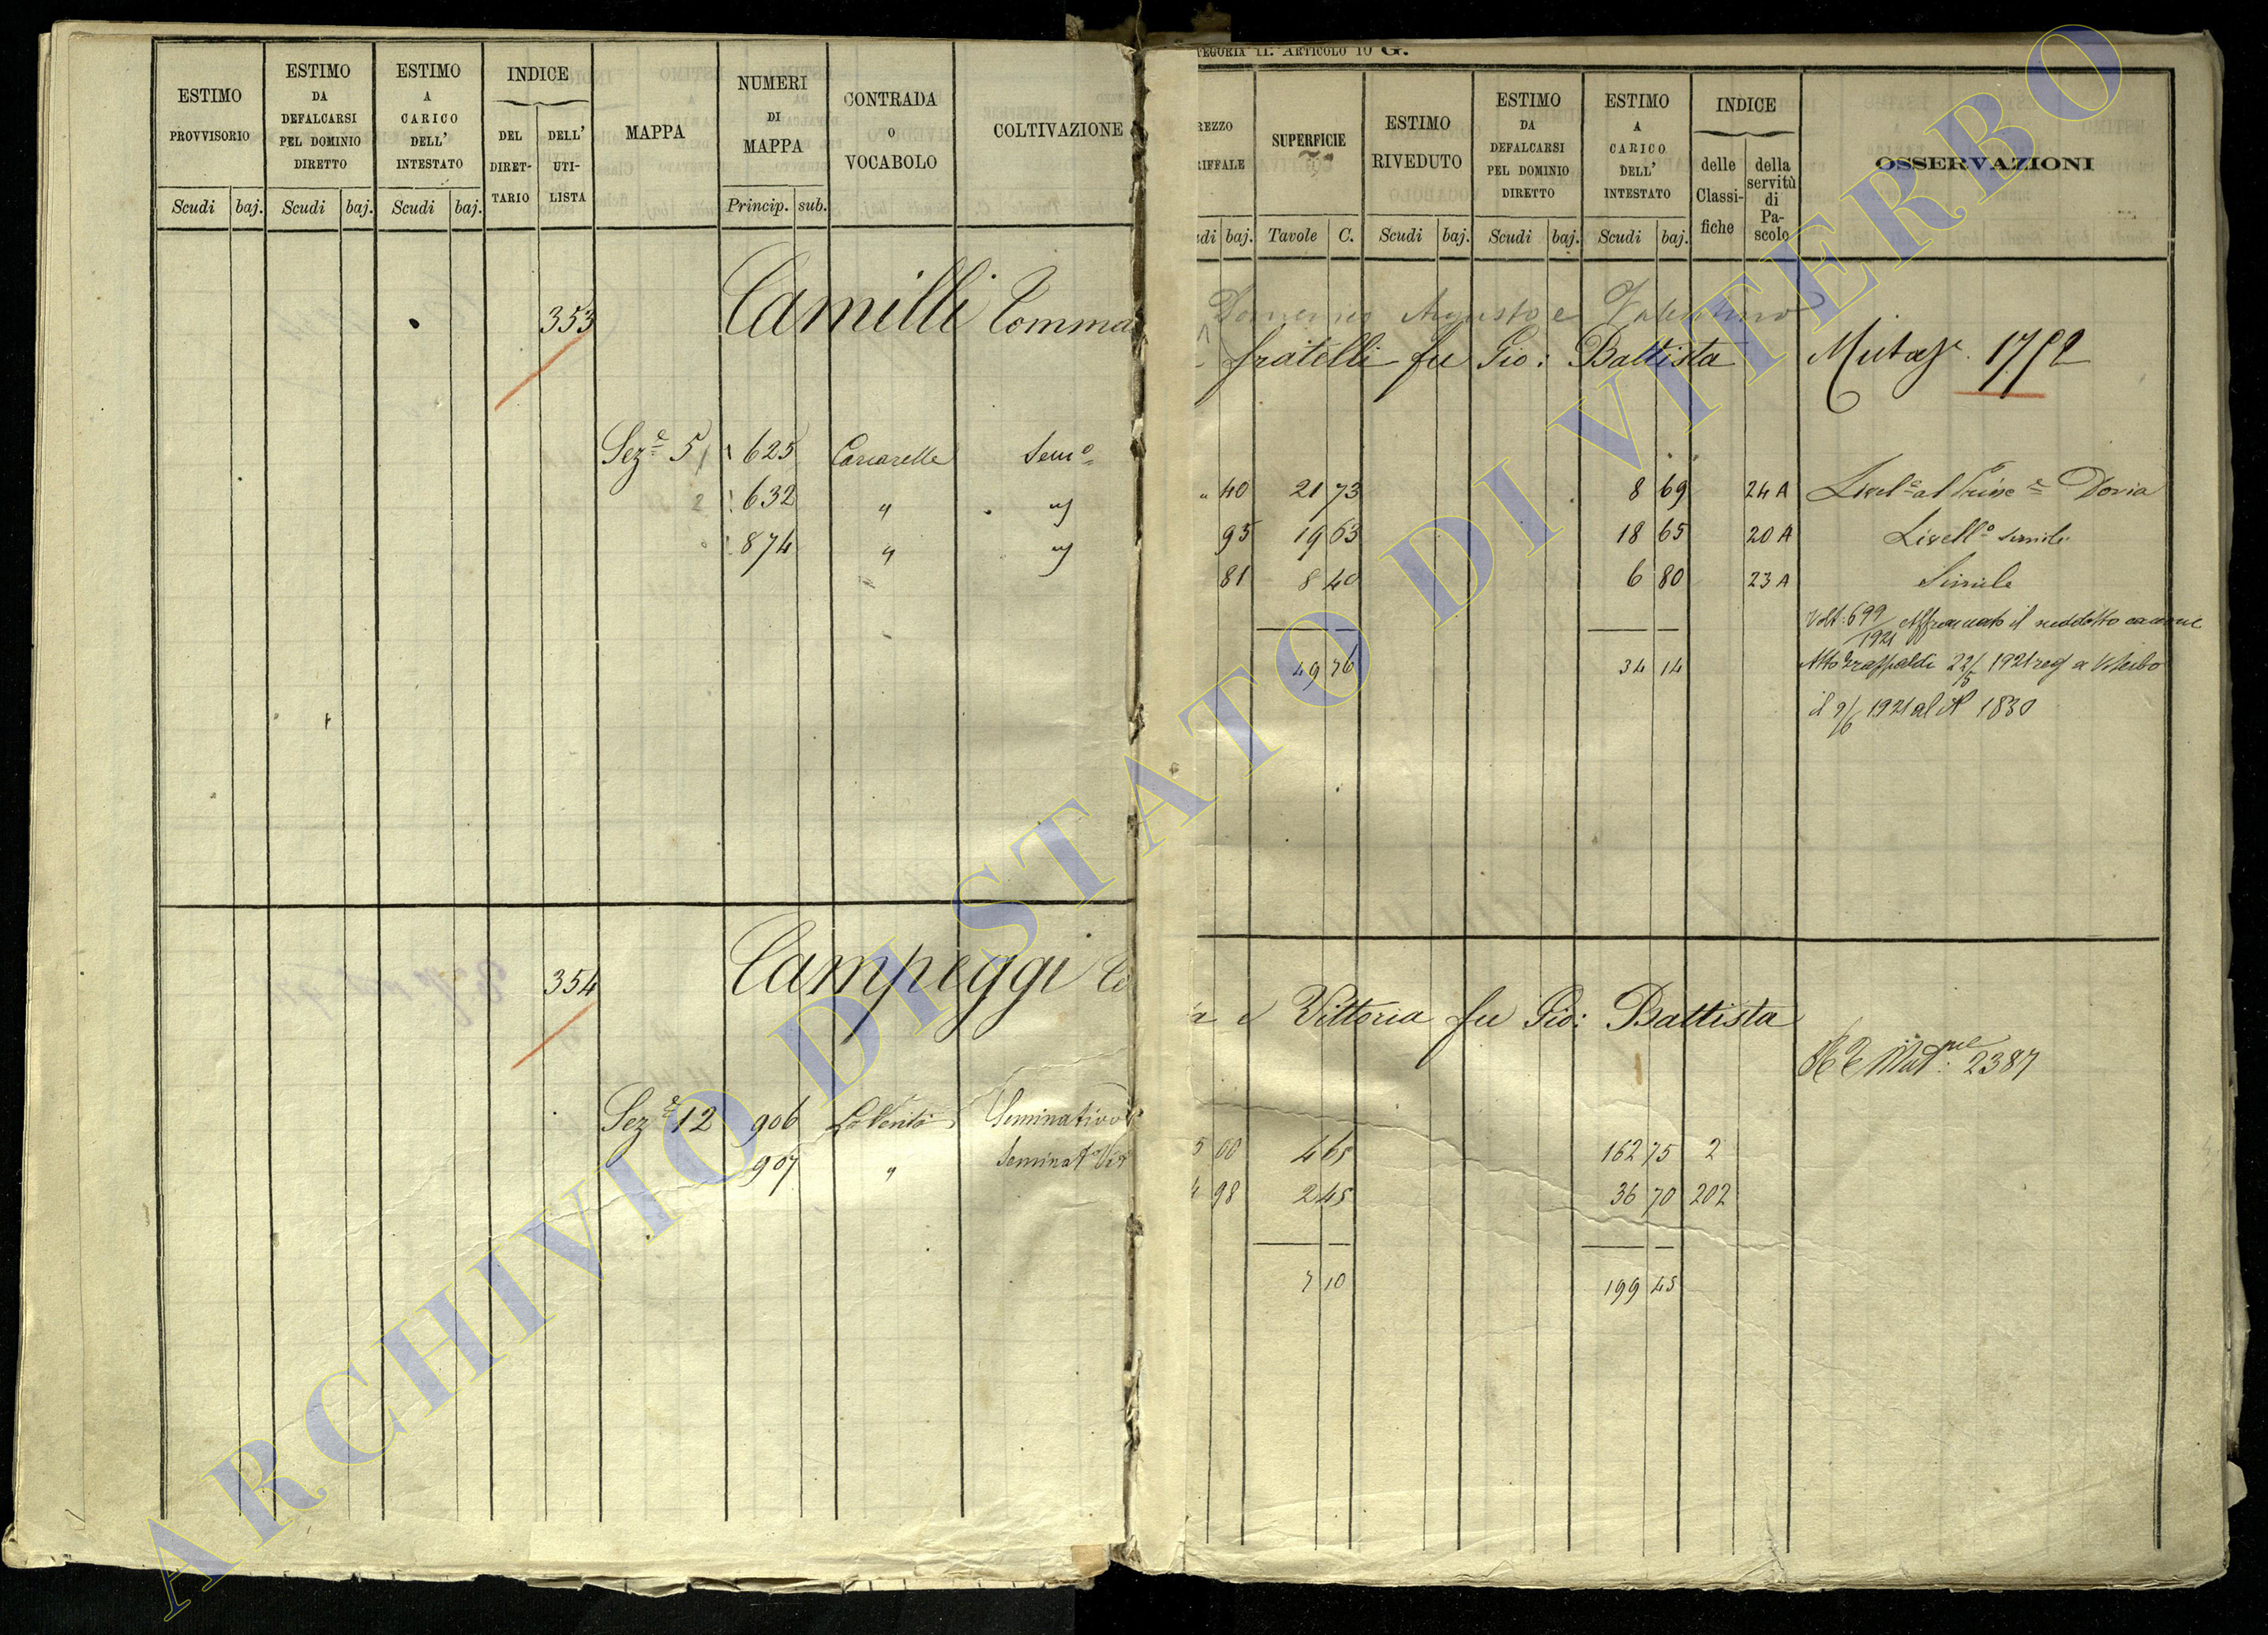 ESTIMO PROVVISORIO
Scudi baj.
ESTIMO DA DEFALCARSI PEL DOMINIO DIRETTO
Scudi baj.
ESTIMO A CARICO DELL' INTESTATO
Scudi baj.
INDICE
DEL DIRET-TARIO
DELL' UTI-LISTA
MAPPA
NUMERI DI MAPPA
Princip. sub.
CONTRADA O VOCABOLO
COLTIVAZIONE
353 Camilli Tomma
Sez.e 5 625 Semo
2 632 " "
874 " "
354 Campeggi
Sez.e 12 906 Seminativo
907 "
TEGORIA II. ARTICOLO 10 G.
REZZO
RIFFALE
di baj.
SUPERFICIE
Tavole C.
ESTIMO RIVEDUTO
Scudi baj.
ESTIMO DA DEFALCARSI PEL DOMINIO DIRETTO
Scudi baj.
ESTIMO A CARICO DELL' INTESTATO
Scudi baj.
INDICE
delle Classi-fiche
della servitù di Pa-scolo
OSSERVAZIONI
Domenico Augusto e Valentino
fratelli fu Gio: Battista
" 40 21 73 8 69 24 A Doria
95 19 63 18 65 20 A Livello simile
81 8 40 6 80 23 A Simile
Volt. 699/1921 Affrancato il suddetto canone
49 76 34 14 Atto 22/5 1921 reg a Viterbo
il 9/6 1921 al N 1830
a e Vittoria fu Gio: Battista
2387
5 00 4 65 162 75 2
4 98 2 45 36 70 202
7 10 199 45
ARCHIVIO DI STATO DI VITERBO